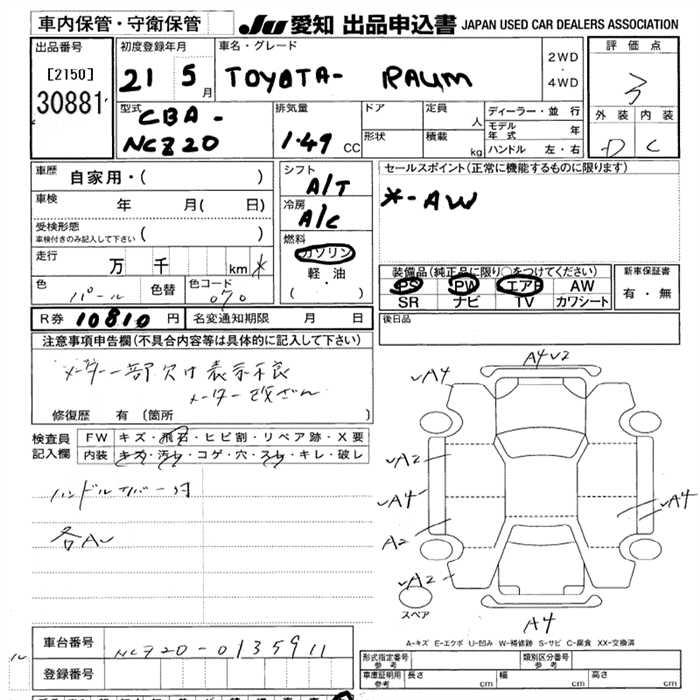 車内保管・守衛保管
JU 愛知 出品申込書 JAPAN USED CAR DEALERS ASSOCIATION
出品番号
[2150]
30881
初度登録年月
21 5月
車名・グレード
TOYOTA- RAUM
2WD
・
4WD
評価点
3
外装 内装
D C
型式
CBA-
NCZ20
排気量
1.49 CC
ドア
形状
定員 人
積載 kg
ディーラー・並行
モデル年式 年
ハンドル 左・右
車歴 自家用・( )
車検 年 月( 日)
受検形態
車検付きのみ記入して下さい ( )
走行 万 千 km *
色 パール 色替 色コード 070
シフト
A/T
冷房
A/C
燃料
ガソリン
軽油
( ・ )
セールスポイント(正常に機能するものに限ります)
*-AW
装備品(純正品に限り○をつけてください)
PS PW エアB AW
SR ナビ TV カワシート
新車保証書
有・無
R券 10810 円 名変通知期限 月 日
後日品
注意事項申告欄(不具合内容等は具体的に記入して下さい)
メーター一部欠け表示不良
メーター改ざん
修復歴 有(箇所 )
検査員
記入欄
FW キズ・飛石・ヒビ割・リペア跡・X要
内装 キズ・汚れ・コゲ・穴・スレ・キレ・破レ
ハンドルカバー付
各AU
A4 U2
A4
A2
A4
A4
A2
A2
A4
スペア
A-キズ E-エクボ U-凹み W-補修跡 S-サビ C-腐食 XX-交換済
車台番号 NCZ20-0135911
登録番号
形式指定番号
参考
類別区分番号
参考
車庫証明用
参考
長さ 幅 高さ
cm